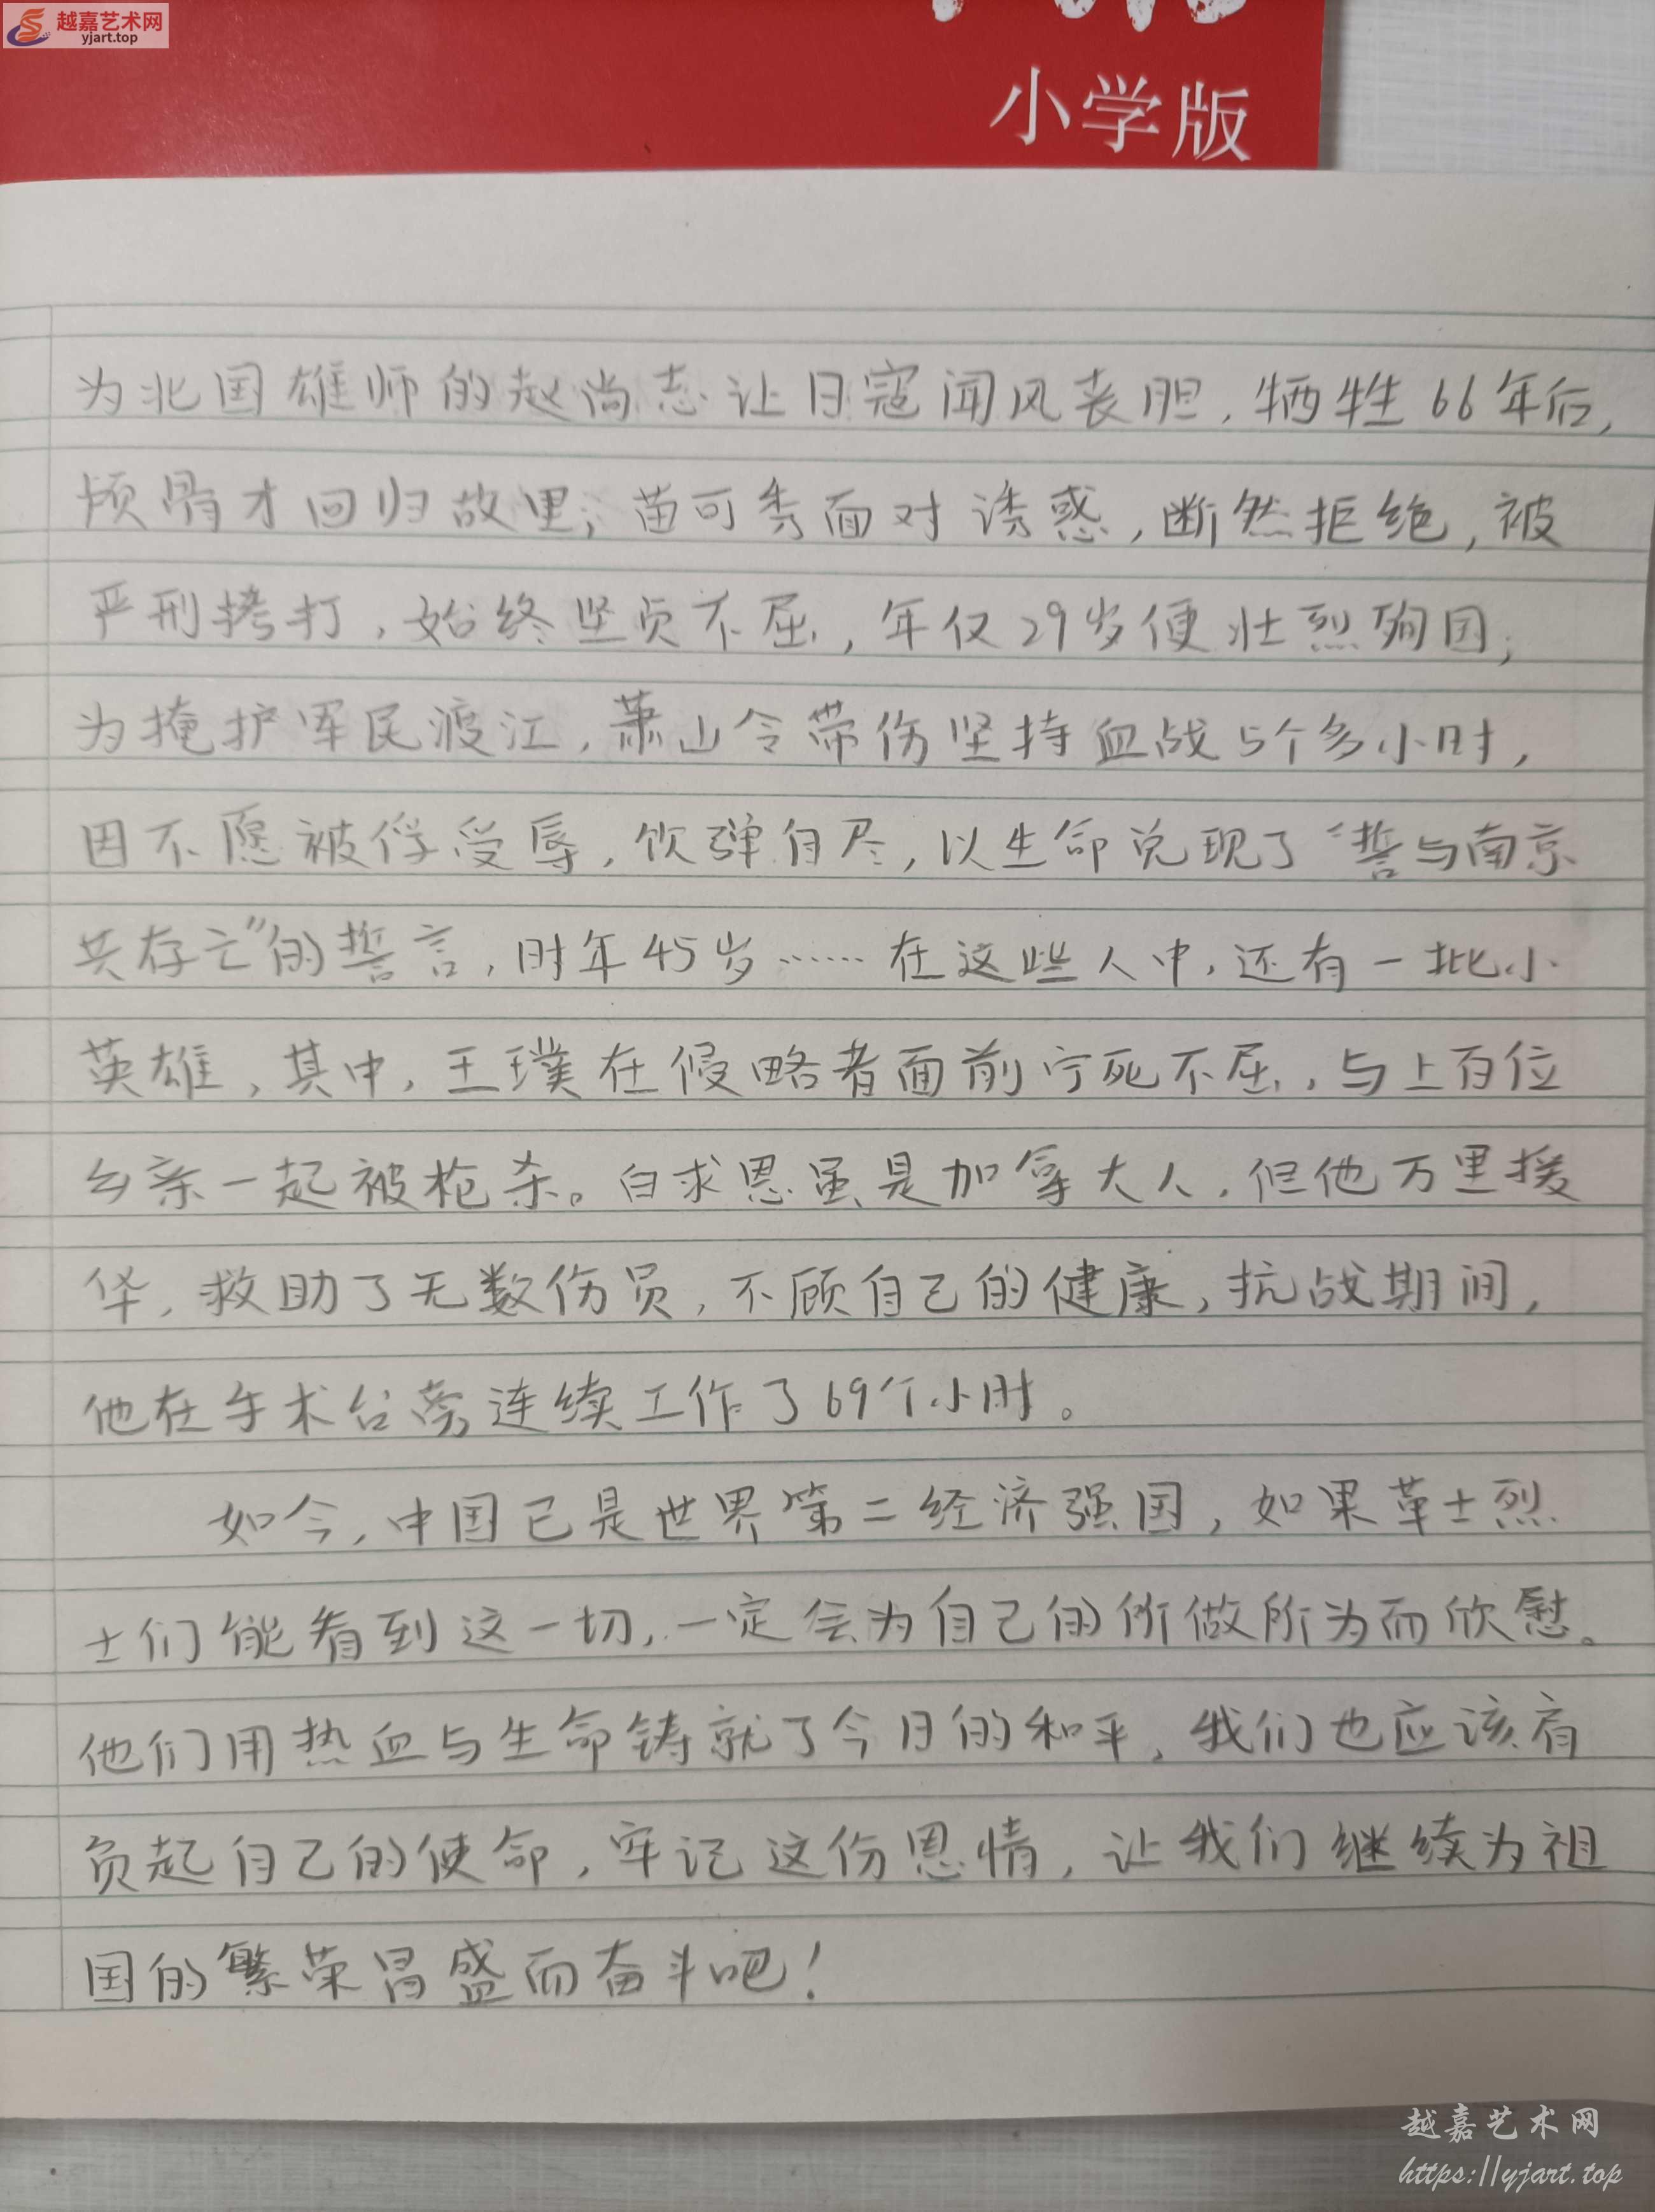 越嘉艺术网
yjart.top
小学版
为北国雄师的赵尚志让日寇闻风丧胆，牺牲66年后，
颅骨才回归故里；苗可秀面对诱惑，断然拒绝，被
严刑拷打，始终坚贞不屈，年仅29岁便壮烈殉国；
为掩护军民渡江，萧山令带伤坚持血战5个多小时，
因不愿被俘受辱，饮弹自尽，以生命兑现了“誓与南京
共存亡”的誓言，时年45岁……在这些人中，还有一批小
英雄，其中，王璞在侵略者面前宁死不屈，与上百位
乡亲一起被枪杀。白求恩虽是加拿大人，但他万里援
华，救助了无数伤员，不顾自己的健康，抗战期间，
他在手术台旁连续工作了69个小时。
如今，中国已是世界第二经济强国，如果革士烈
士们能看到这一切，一定会为自己的所做所为而欣慰。
他们用热血与生命铸就了今日的和平，我们也应该肩
负起自己的使命，牢记这份恩情，让我们继续为祖
国的繁荣昌盛而奋斗吧！
越嘉艺术网
https://yjart.top